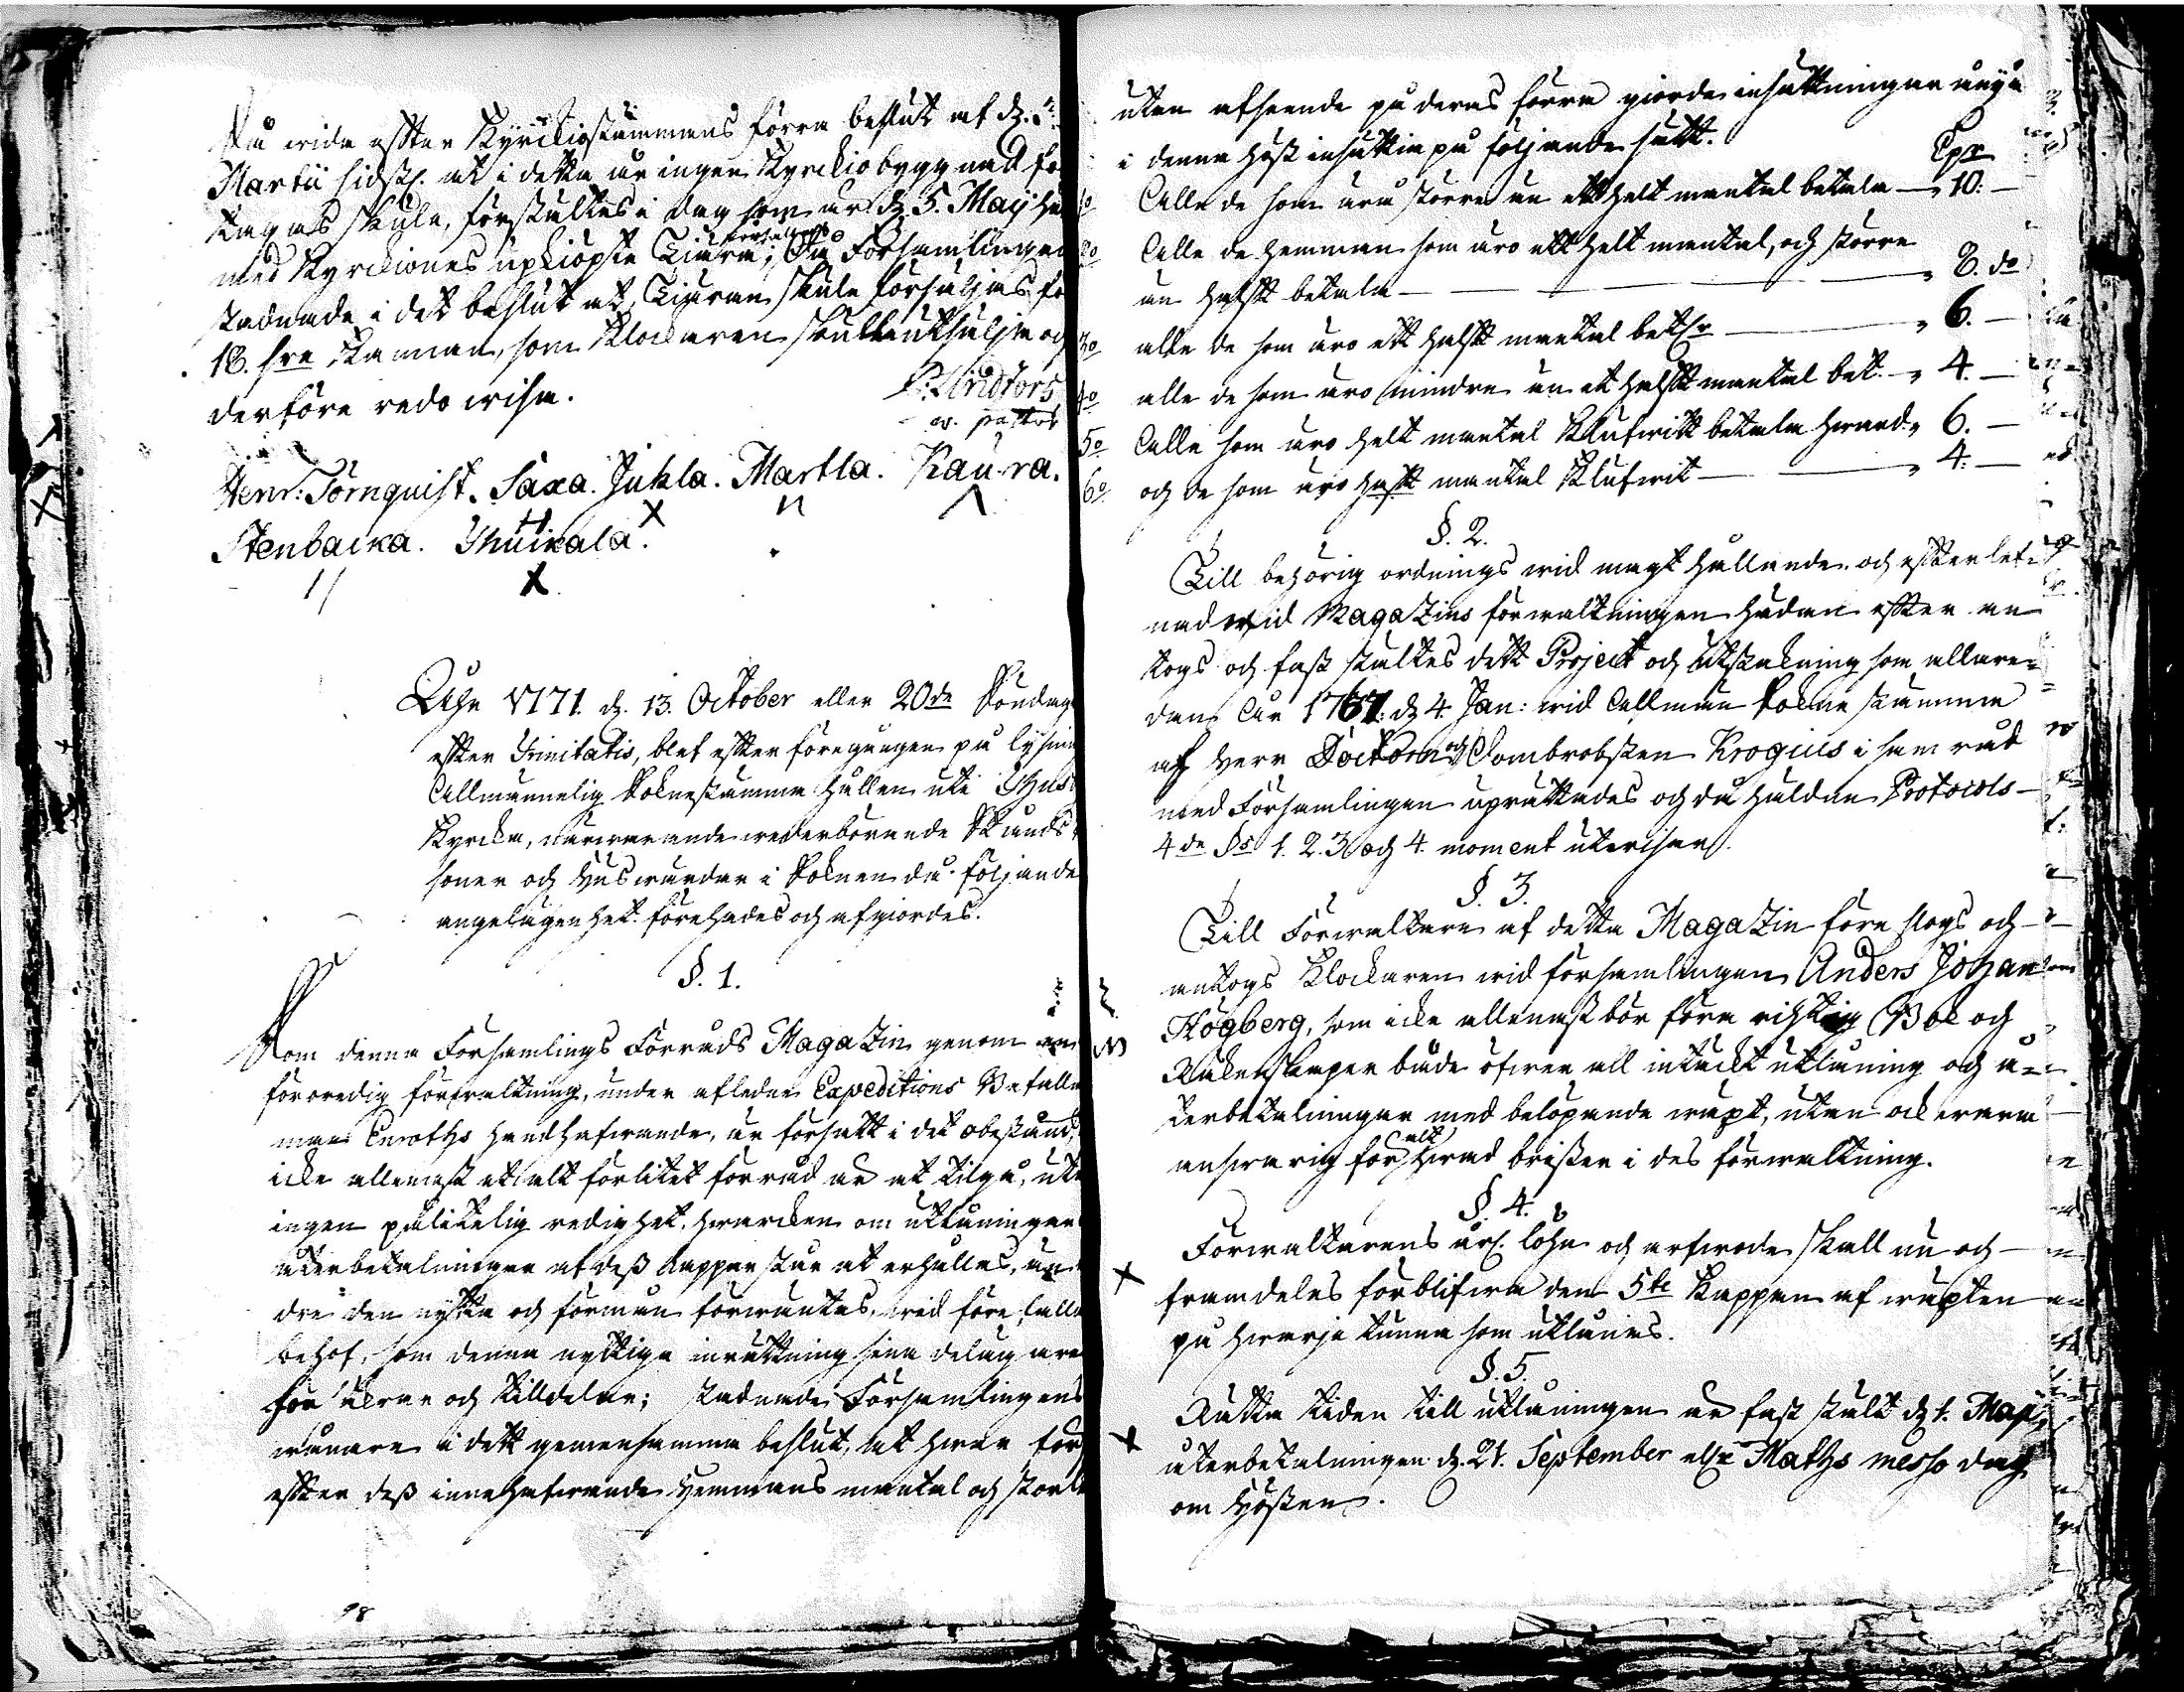 På wida effter Kyrckiostämmans förra beslut af d.
Martii sidstl. at i detta år ingen Kyrckiobyggnad fö
tagas skulle, förstältes i dag som är d. 5. Maij hu
med Kyrckiones upkiöpte Tiära; Då Församlingen
stadnade i det beslut at Tiäran skulle försäljas fö
18. öre Kannan, som Klockaren skulle utsälja och
derföre redo wisa.
Lindfors
v. pastor
Henr: Törnquist. Saxa. Juhla. Martla. Kaura.
Stenbacka. Yhuikala.
Åhr 1771. d. 13. October eller 20de Söndag
effter Trinitatis, blef effter föregången pålysning
Allmännelig Soknestämma hållen uti
Kyrcka, närwarande wederbörande Stånds
soner och Huswärdar i Soknen då följande
angelägenhet förehades och afgiordes.
§. 1.
Som denna Församlings Förråds Magazin genom en
föroredig förwaltning, under afledne Expeditions Befalln
man Enroths handhafwande, är försatt i det obestånd,
icke allenast et alt förlitet förråd är at tilgå, uta
ingen pålitelig redighet, hwarcken om utlåningen
återbetalningen af dess Kappar står at erhållas, än
dre den nytta och förmån förwäntas, wid före falla
behof, som denna nyttiga inrättning sina delägare
för ärnar och tilldelar; stadnade Församlingens
wånare i dett gemensamma beslut, att hwar för
effter dess innehafwande Hemmans mantal och storle
uten afseende på deras förra giorde insättningar ånyo
i denna höst insättia på följande sätt.
Cpr
1o Alla de som äro större än ett helt mantal betala — „ 10: —
2o Alla de hemman som äro ett helt mantal, och större
än halft betala — „ 8. do
3o alla de som äro ett halft mantal betr — „ 6. —
4o alla de som äro mindre än et halft mantal bet. — „ 4. —
5o Alla som äro helt mantal Klufwit betala hward „ 6. —
6o och de som äro halft mantal Klufwit — „ 4: —
§. 2.
Till behörig ordnings wid magt hållande och effterlef-
nad wid Magazins förwaltningen hädan effter an
togs och fast ställes dett Project och utstakning som allare-
dan Åar 1767: d. 4. Jan: wid Allmän Sokne stämma
af Herr Doctorn och Dombrobsten Krogius i samråd
med Församlingen uprättades och då hulldna Protocols
4de §s 1. 2. 3 och 4. moment utwisar.
§. 3.
Till Förwaltare af detta Magazin före slogs och
antogs Klockaren wid församlingen Anders Johan
Högberg, som icke allenast bör föra richtig Bok och
Räkenskaper både öfwer all intäckt utlåning och å-
terbetalningar med belöpande wäxt, utan ock wara
answarig för alt hwad brister i des förwaltning.
§. 4.
Förwaltarens årl. löhn och arfwode skall nu och
framdeles förblifwa den 5te Kappan af wäxten
på hwarje tunna som utlånes.
§. 5.
Rätta tiden till utlåningen är fast stält d. 1. Maij,
återbetalningen d. 21. September eller Maths messo dag
om Hösten.
98